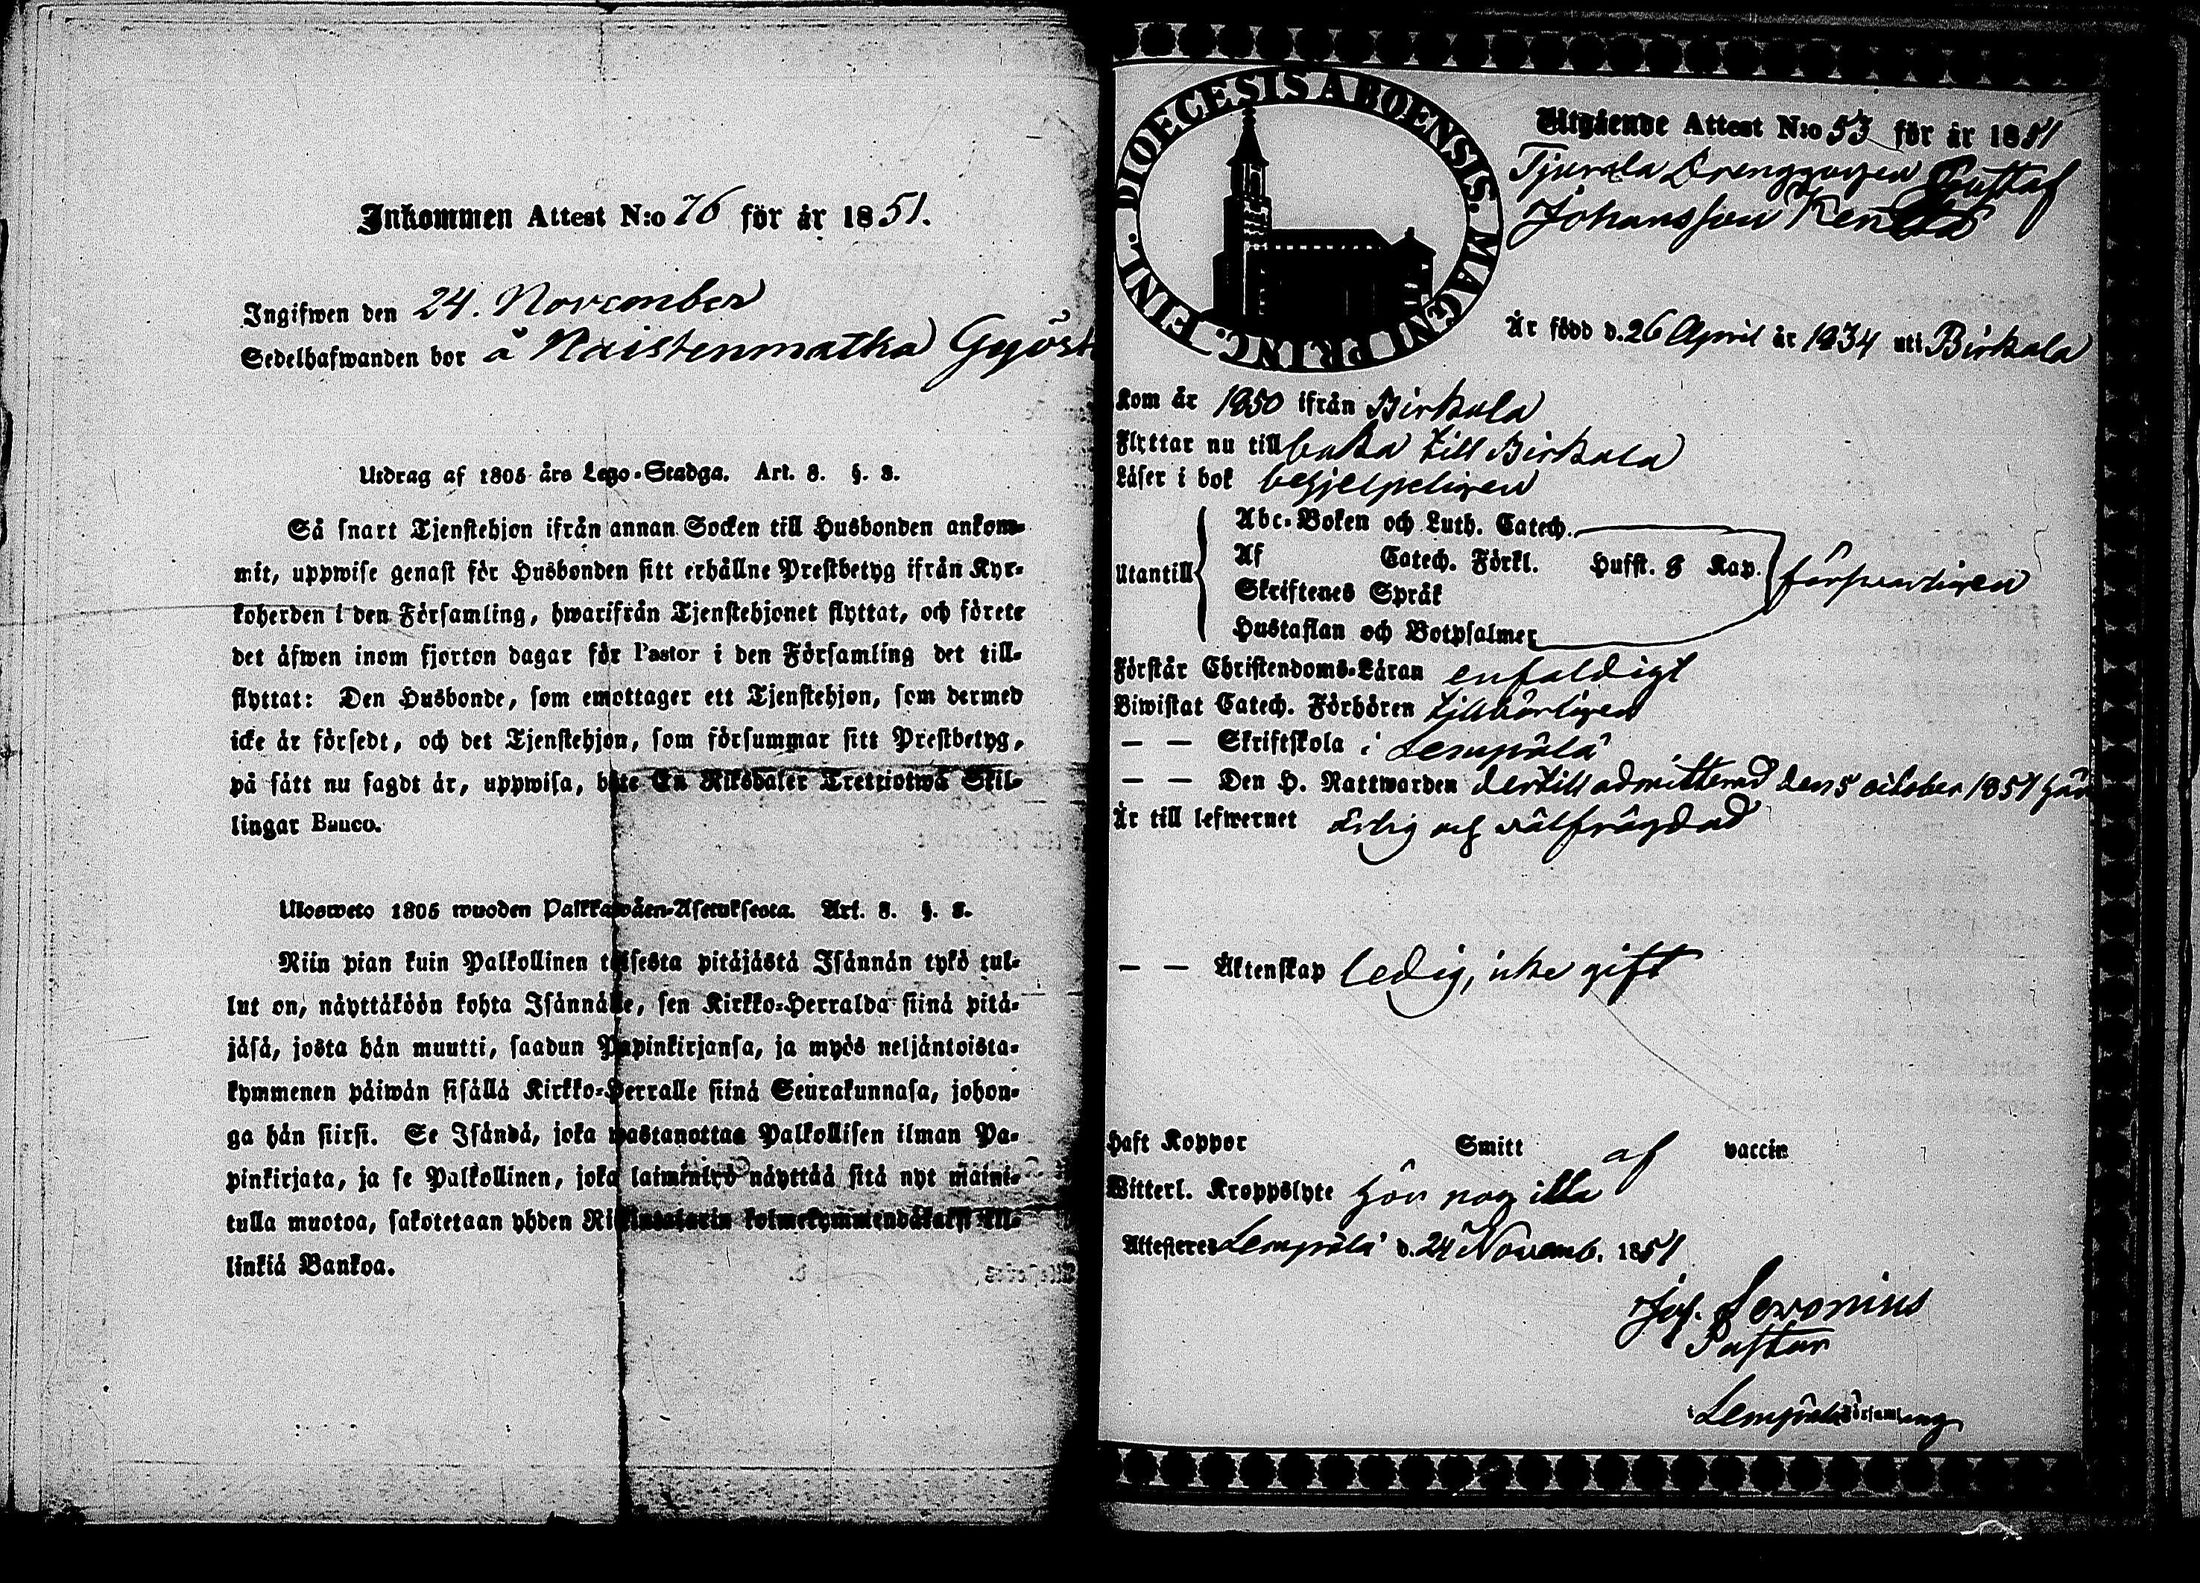 Inkommen Attest N:o 76 för år 1851.
Ingifwen den 24. November
Sedelhafwanden bor å Naistenmatka
Utdrag af 1805 års Lego-Stadga. Art. 8. §. 8.
Så snart Tjenstehjon ifrån annan Socken till Husbonden ankom-
mit, uppwise genast för Husbonden sitt erhållne Prestbetyg ifrån Kyr-
koherden i den Församling, hwarifrån Tjenstehjonet flyttat, och förete
det äfwen inom fjorton dagar för Pastor i den Församling det till-
flyttat: Den Husbonde, som emottager ett Tjenstehjon, som dermed
icke är försedt, och det Tjenstehjon, som försummar sitt Prestbetyg,
på sätt nu sagdt är, uppwisa, böte En Riksdaler Trettiotwå Skil-
lingar Banco.
Ulosweto 1805 wuoden Palkkawäen-Asetuksesta. Art. 8. §. 8.
Niin pian kuin Palkollinen toisesta pitäjästä Isännän tykö tul-
lut on, näyttäköön kohta Isännälle, sen Kirkko-Herralda siinä pitä-
jäsä, josta hän muutti, saadun Papinkirjansa, ja myös neljäntoista-
kymmenen päiwän sisällä Kirkko-Herralle siinä Seurakunnasa, johon-
ga hän siirsi. Se Isändä, joka wastanottaa Palkollisen ilman Pa-
pinkirjata, ja se Palkollinen, joka laiminlyö näyttää sitä nyt maini-
tulla muotoa, sakotetaan yhden Riikintalarin kolmekymmendäkaksi kil-
linkiä Bankoa.
DIOECESIS ABOENSIS. MAGNI PRINC. FINL.
Utgående Attest N:o 53 för år 1851
Tjurala Drenggossen Gustaf
Johansson
Är född d. 26 April år 1834 uti Birkala
Kom år 1850 ifrån Birkala
Flyttar nu till baka till Birkala
Läser i bok behjelpeligen
Utantill
Abc-Boken och Luth. Catech.
Af Catech. Förkl. Hufst. 8 Kap.
försvarligen
Skriftenes Språk
Hustaflan och Botpsalmer
Förstår Christendoms-Läran enfaldigt
Biwistat Catech. Förhören tillbörligen
— — Skriftskola i Lempälä
— — Den H. Nattwarden dertill admitterad den 5 october 1851 här
Är till lefwernet ärlig och välfrägdad
— — Äktenskap ledig, icke gift
Haft Koppor Smitt af vaccin
Witterl. Kroppslyte hör nog illa
Attesteres Lempälä d. 24 Novemb. 1851
Joh. Sevonius
Pastor
i Lempälä Församling